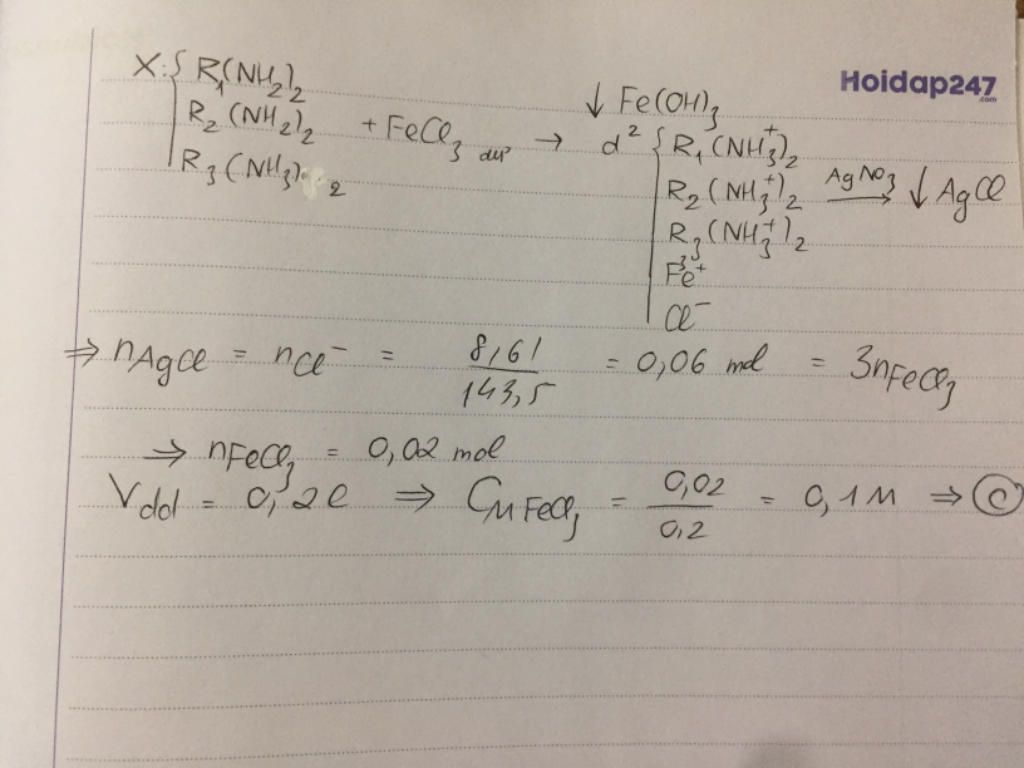 Hoidap247
.com
X: { R₁(NH₂)₂
R₂(NH₂)₂ + FeCl₃ dư → ↓ Fe(OH)₃
R₃(NH₃)₂ d² { R₁(NH₃⁺)₂
R₂(NH₃⁺)₂ AgNO₃ → ↓ AgCl
R₃(NH₃⁺)₂
Fe³⁺
Cl⁻
⇒ nAgCl = nCl⁻ = 8,61 / 143,5 = 0,06 mol = 3nFeCl₃
⇒ nFeCl₃ = 0,02 mol
Vdd = 0,2l ⇒ CM FeCl₃ = 0,02 / 0,2 = 0,1M ⇒ C